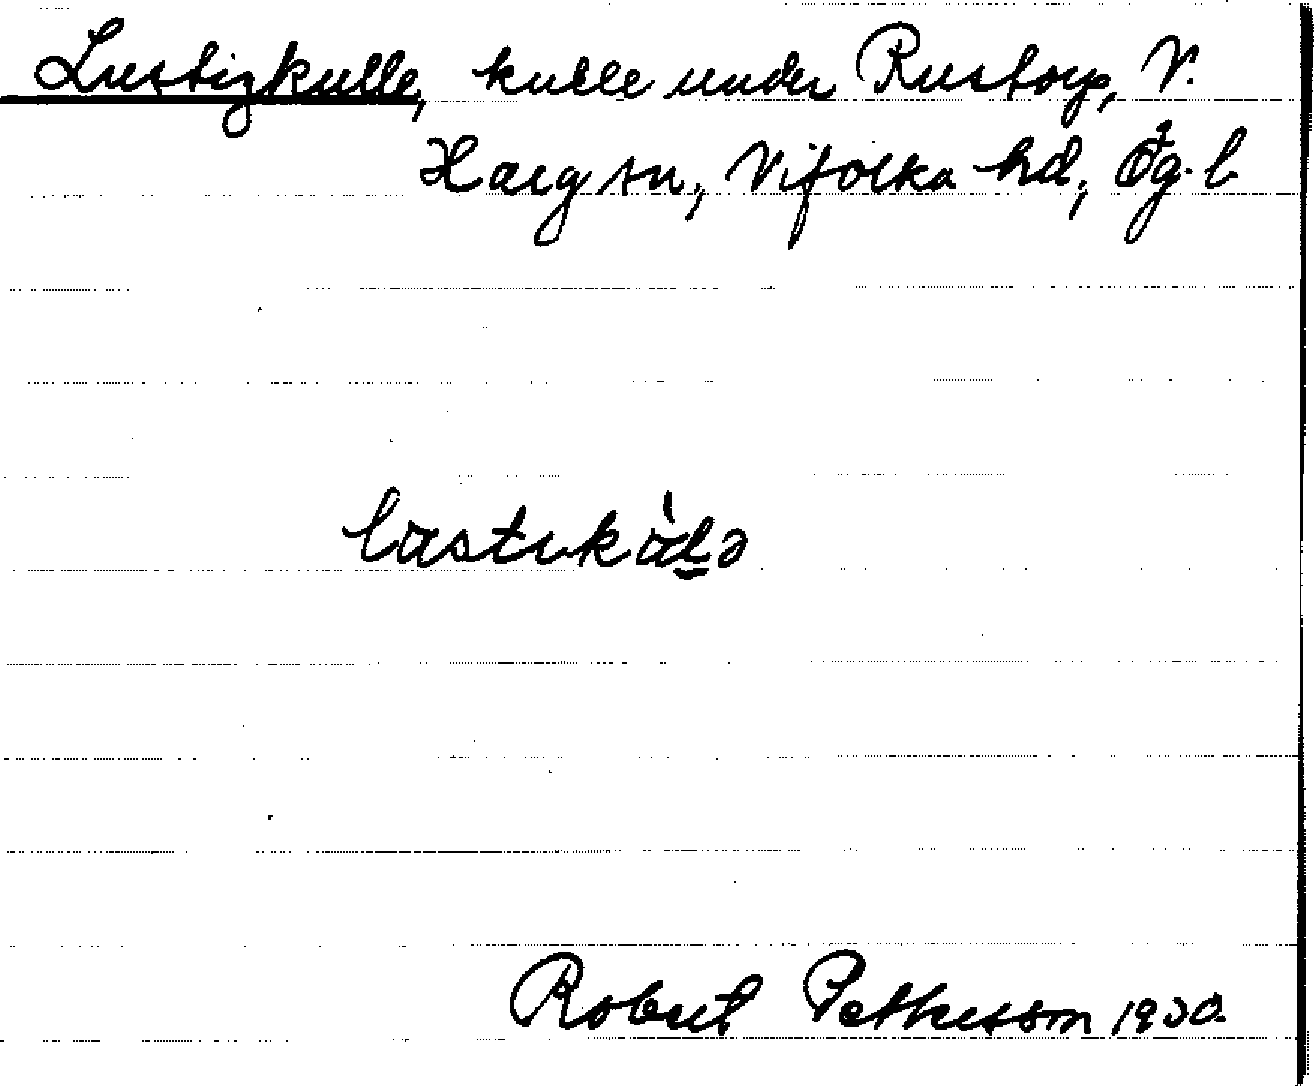 Lustigkulle, kulle under Rustorp, V.
Harg sn, Vifolka hd, Ög. l
lastikàlə
Robert Petterson 1930.